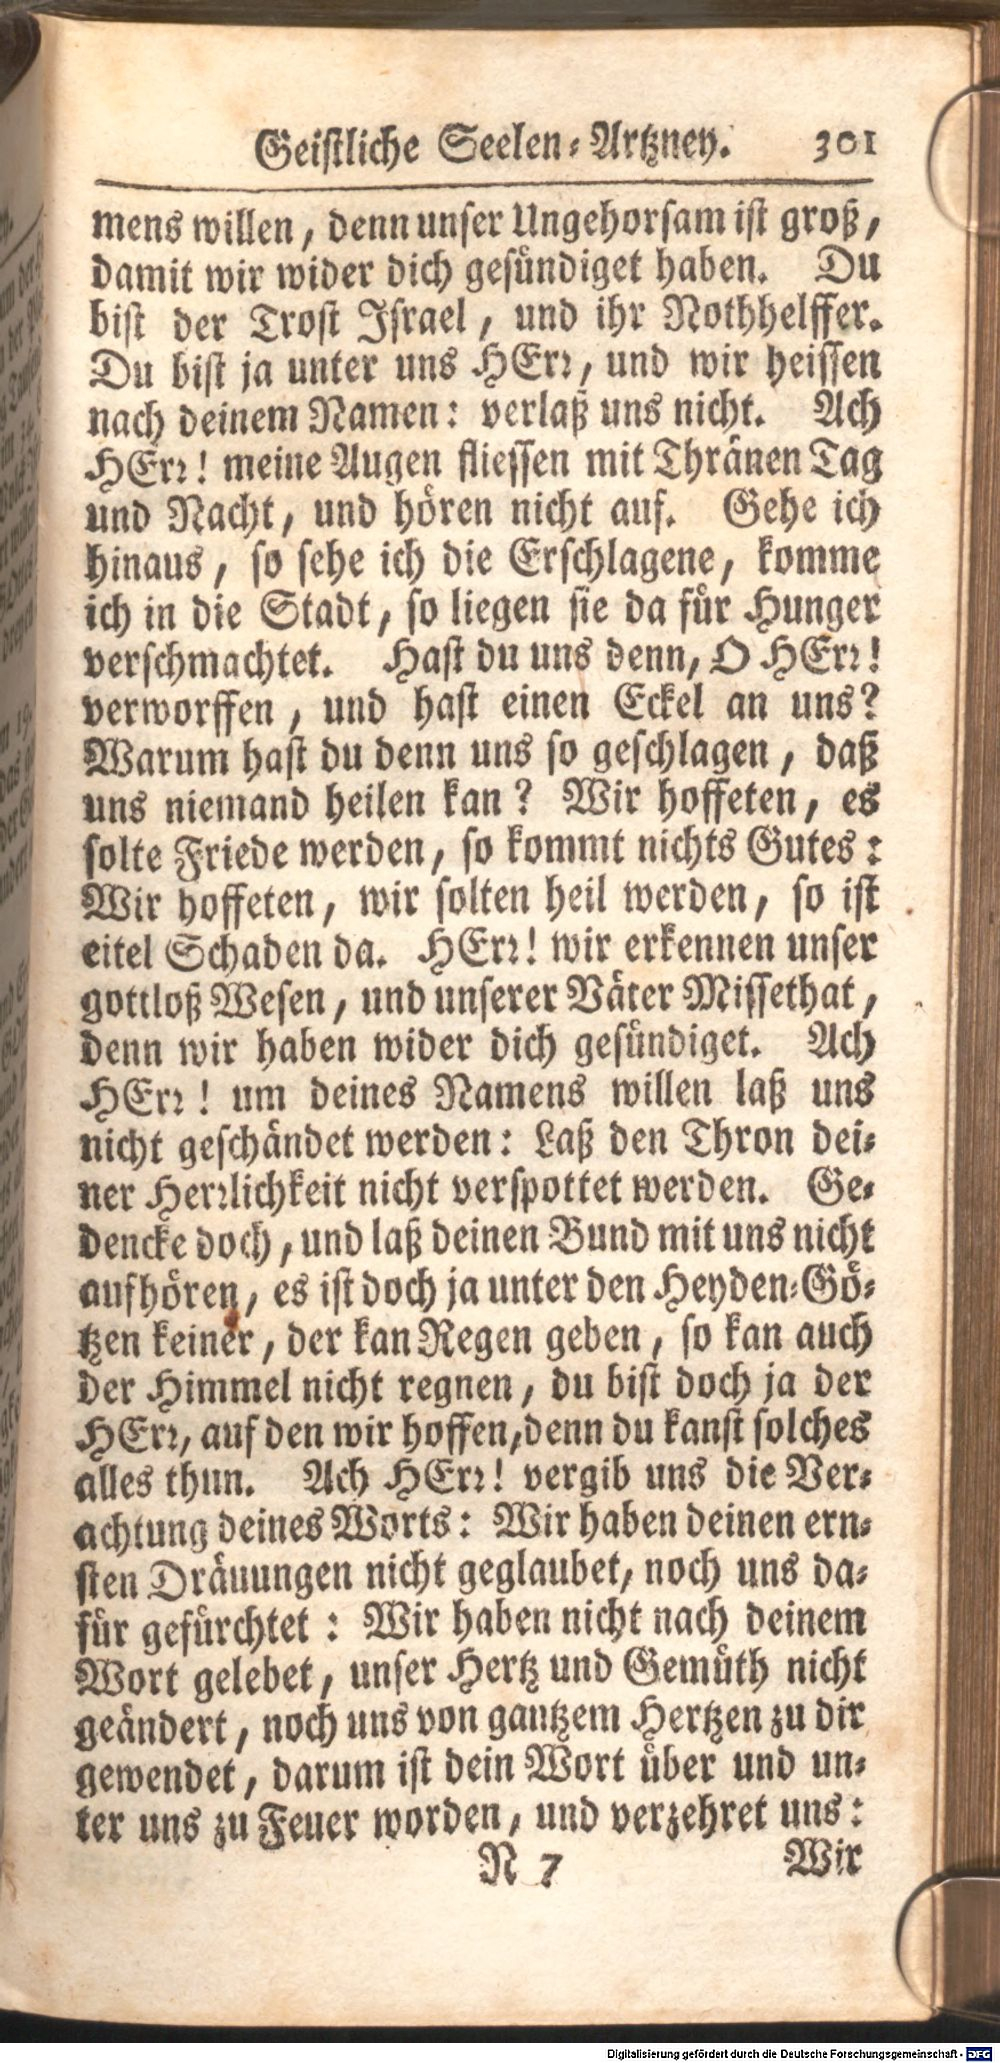 Geistliche Seelen-Artzney. 301
mens willen, denn unser Ungehorsam ist groß,
damit wir wider dich gesündiget haben. Du
bist der Trost Israel, und ihr Nothhelffer.
Du bist ja unter uns HErr, und wir heissen
nach deinem Namen: verlaß uns nicht. Ach
HErr! meine Augen fliessen mit Thränen Tag
und Nacht, und hören nicht auf. Gehe ich
hinaus, so sehe ich die Erschlagene, komme
ich in die Stadt, so liegen sie da für Hunger
verschmachtet. Hast du uns denn, O HErr!
verworffen, und hast einen Eckel an uns?
Warum hast du denn uns so geschlagen, daß
uns niemand heilen kan? Wir hoffeten, es
solte Friede werden, so kommt nichts Gutes:
Wir hoffeten, wir solten heil werden, so ist
eitel Schaden da. HErr! wir erkennen unser
gottloß Wesen, und unserer Väter Missethat,
denn wir haben wider dich gesündiget. Ach
HErr! um deines Namens willen laß uns
nicht geschändet werden: Laß den Thron dei-
ner Herrlichkeit nicht verspottet werden. Ge-
dencke doch, und laß deinen Bund mit uns nicht
aufhören, es ist doch ja unter den Heyden-Gö-
tzen keiner, der kan Regen geben, so kan auch
der Himmel nicht regnen, du bist doch ja der
HErr, auf den wir hoffen, denn du kanst solches
alles thun. Ach HErr! vergib uns die Ver-
achtung deines Worts: Wir haben deinen ern-
sten Dräuungen nicht geglaubet, noch uns da-
für gefürchtet: Wir haben nicht nach deinem
Wort gelebet, unser Hertz und Gemüth nicht
geändert, noch uns von gantzem Hertzen zu dir
gewendet, darum ist dein Wort über und un-
ter uns zu Feuer worden, und verzehret uns:
N 7 Wir
Digitalisierung gefördert durch die Deutsche Forschungsgemeinschaft - DFG